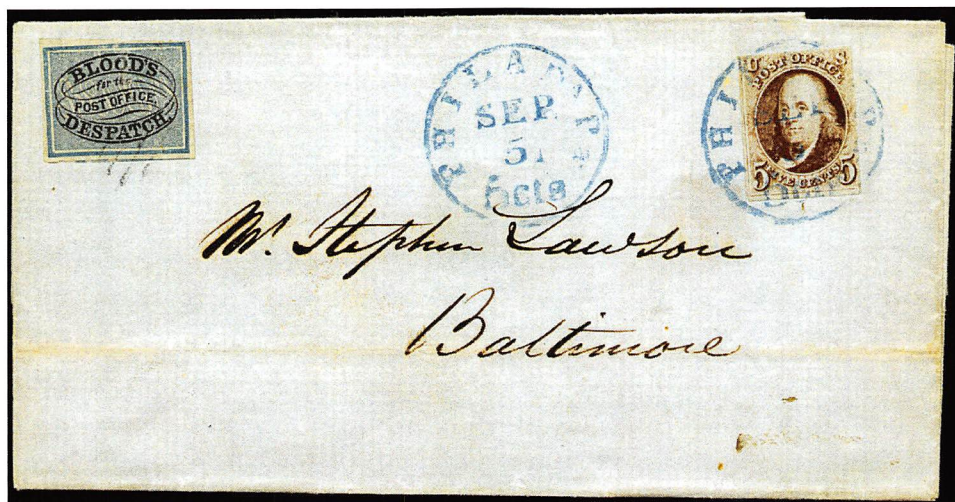 BLOOD'S
for the
POST OFFICE.
DESPATCH.
PHILADA Pa
SEP.
5
5cts
U S
POST OFFICE
5 FIVE CENTS 5
PHI
Mr. Stephen Lawson
Baltimore